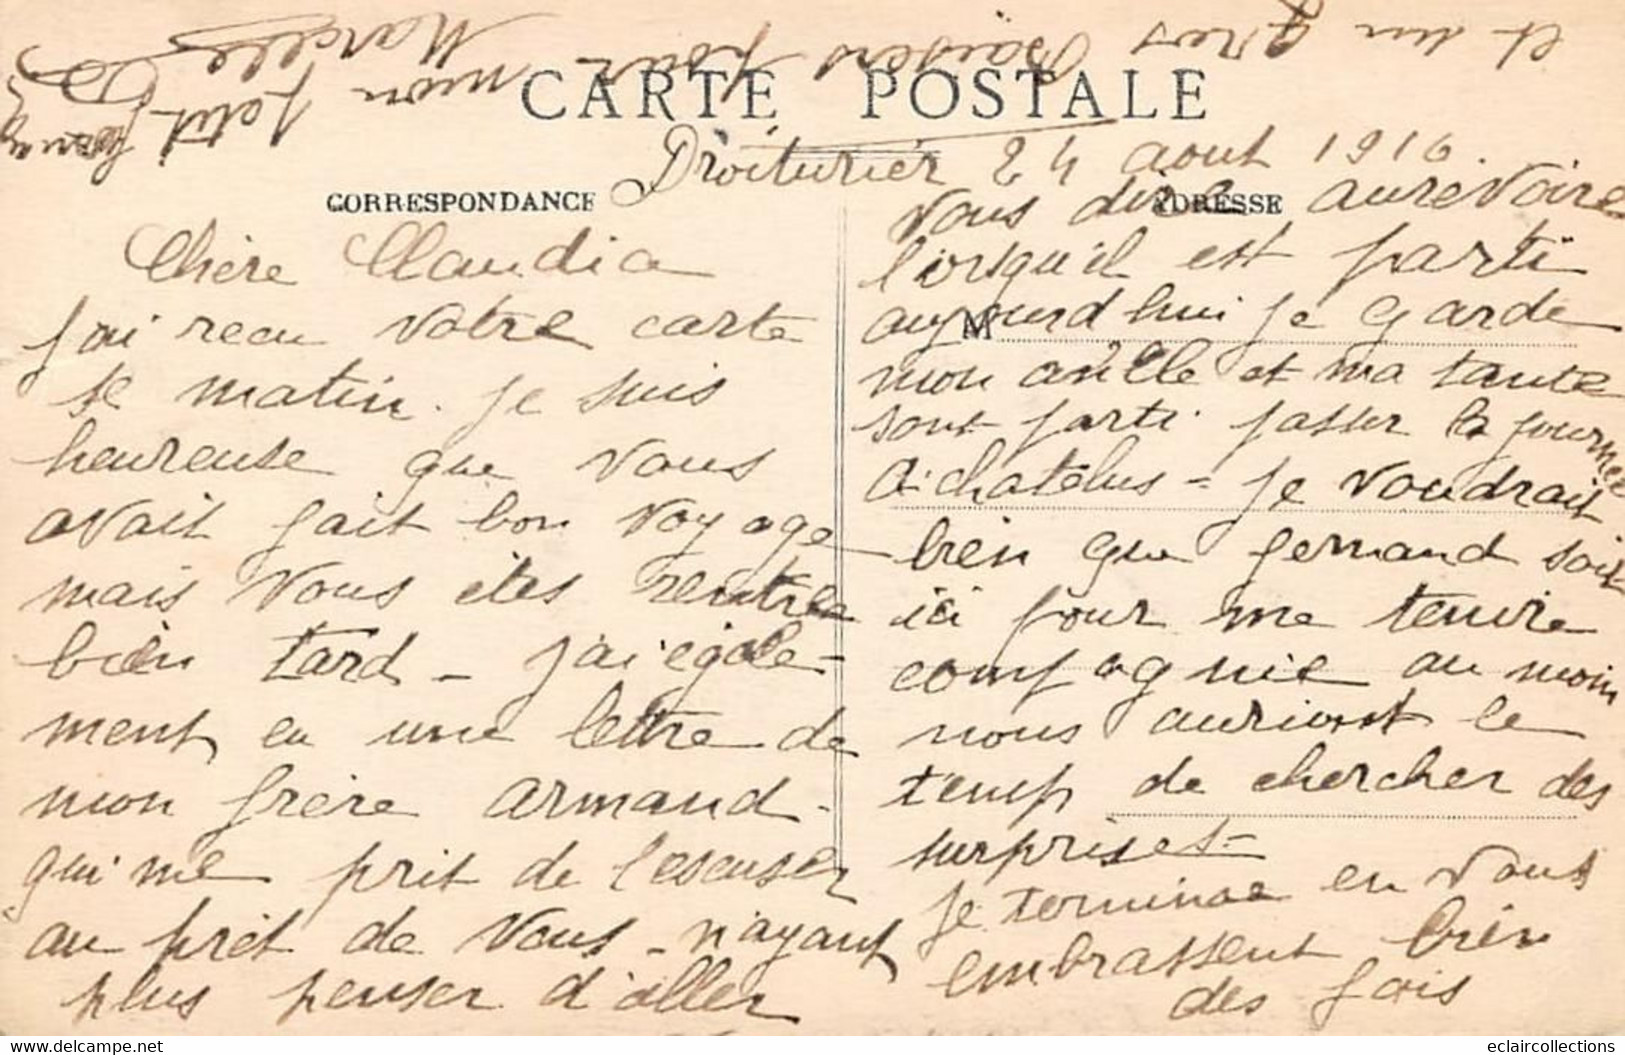 CARTE POSTALE
Droiturier 24 aout 1916.
CORRESPONDANCE
ADRESSE
Chère Claudia
J'ai recu votre carte
se matin. je suis
heureuse que vous
avait fait bon voyage
mais vous êtes rentrée
bien tard - J'ai égale-
ment eu une lettre de
mon frère Armand -
qui me prit de l'escuser
au prêt de vous - n'ayant
plus penser d'aller
vous dire aurevoire
lorsqu'il est parti
aujourd'hui je garde
M
mon et ma tante
sont parti passer la journée
a chatelus - je voudrait
bien que fernand soit
ici pour me tenire
compagnie au moin
nous auriont le
temp de chercher des
surprises -
je termine en vous
embrassent bien
des fois
et un gros Baisers pour mon petit
Marcelle
eclaircollections
www.delcampe.net